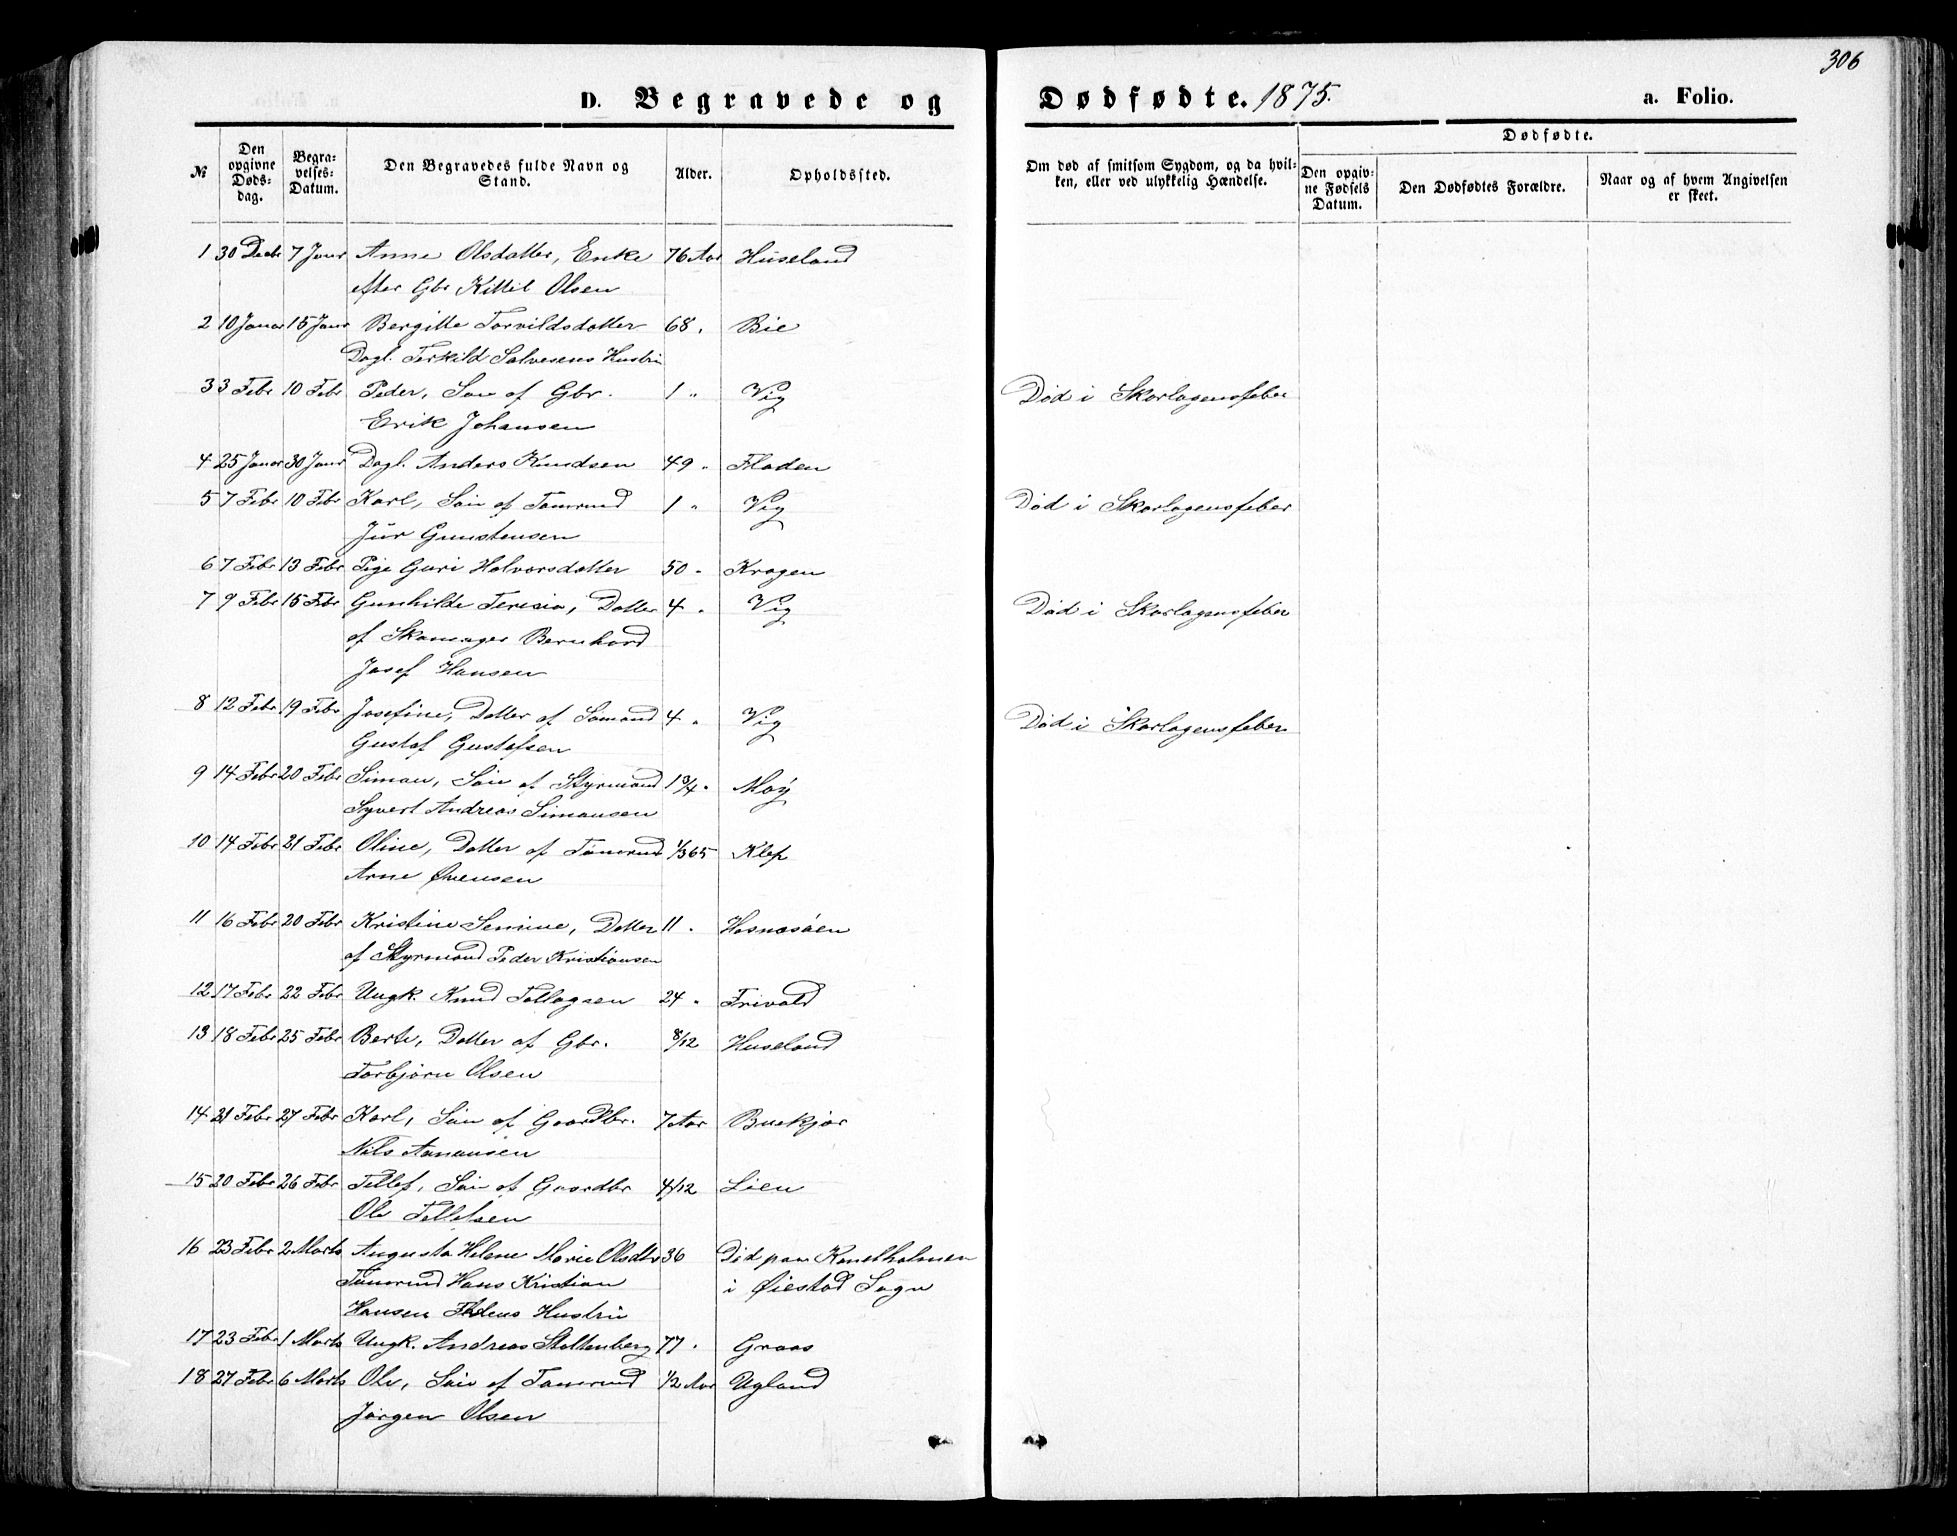 306
D. Begravede og Dødfødte. 1875.
a. Folio.
№
Den opgivne Døds-dag.
Begra-velses-Datum.
Den Begravedes fulde Navn og Stand.
Alder.
Opholdssted.
Om død af smitsom Sygdom, og da hvil-ken, eller ved ulykkelig Hændelse.
Dødfødte.
Den opgiv-ne Fødsels Datum.
Den Dødfødtes Forældre.
Naar og af hvem Angivelsen er skeet.
1 30 Decbr 7 Janr Anne Olsdatter, Enke 76 Aar Huseland
efter Gbr Kittil Olsen
2 10 Januar 15 Janr Bergitte Torvildsdatter 68 " Bie
Dagl. Terkild Salvesens Hustru
3 3 Febr 10 Febr Peder, Søn af Gbr. 1 " Vig Død i Skarlagensfeber
Erik Johansen
4 25 Januar 30 Janr Dagl. Anders Knudsen 49 " Fladen
5 7 Febr 10 Febr Karl, Søn af Tømmd 1 " Vig Død i Skarlagensfeber
Gunstensen
6 7 Febr 13 Febr Pige Guri Halvorsdatter 50 " Kragen
7 9 Febr 15 Febr Gunhilde Teresia, Datter 4 " Vig Død i Skarlagensfeber
af Skomager Bernhard
Josef Hansen
8 12 Febr 19 Febr Josefine, Datter af Sømand 4 " Vig Død i Skarlagensfeber
Gustaf Gustafsen
9 14 Febr 20 Febr Simon, Søn af Styrmand 1 3/4 " Moy
Syvert Andreas Simonsen
10 14 Febr 21 Febr Oline, Datter af Tømmd 1/365 Klep
Arne Øvensen
11 16 Febr 20 Febr Kristine Semine, Datter 11 " Hasnæsøen
af Styrmand Peder Kristiansen
12 17 Febr 22 Febr Ungk. Knud Tellagsen 24 " Frivold
13 18 Febr 25 Febr Berte, Datter af Gbr. 8/12 Huseland
Torbjørn Olsen
14 21 Febr 27 Febr Karl, Søn af Gaardbr. 7 Aar Buekjær
Nils Aanonsen
15 20 Febr 26 Febr Tellef, Søn af Gaardbr 4/12 Lien
Ole Tellefsen
16 23 Febr 2 Marts Augusta Helene Marie Olsdtr 36 Død paa
Tømmd Hans Kristian i Øiestad Sogn
Hansen Hustru
17 23 Febr 1 Marts Ungk. Andreas Stoltenberg 77 " Groos
18 27 Febr 6 Marts Ole, Søn af Tømmd 1/2 Aar Ugland
Jørgen Olsen